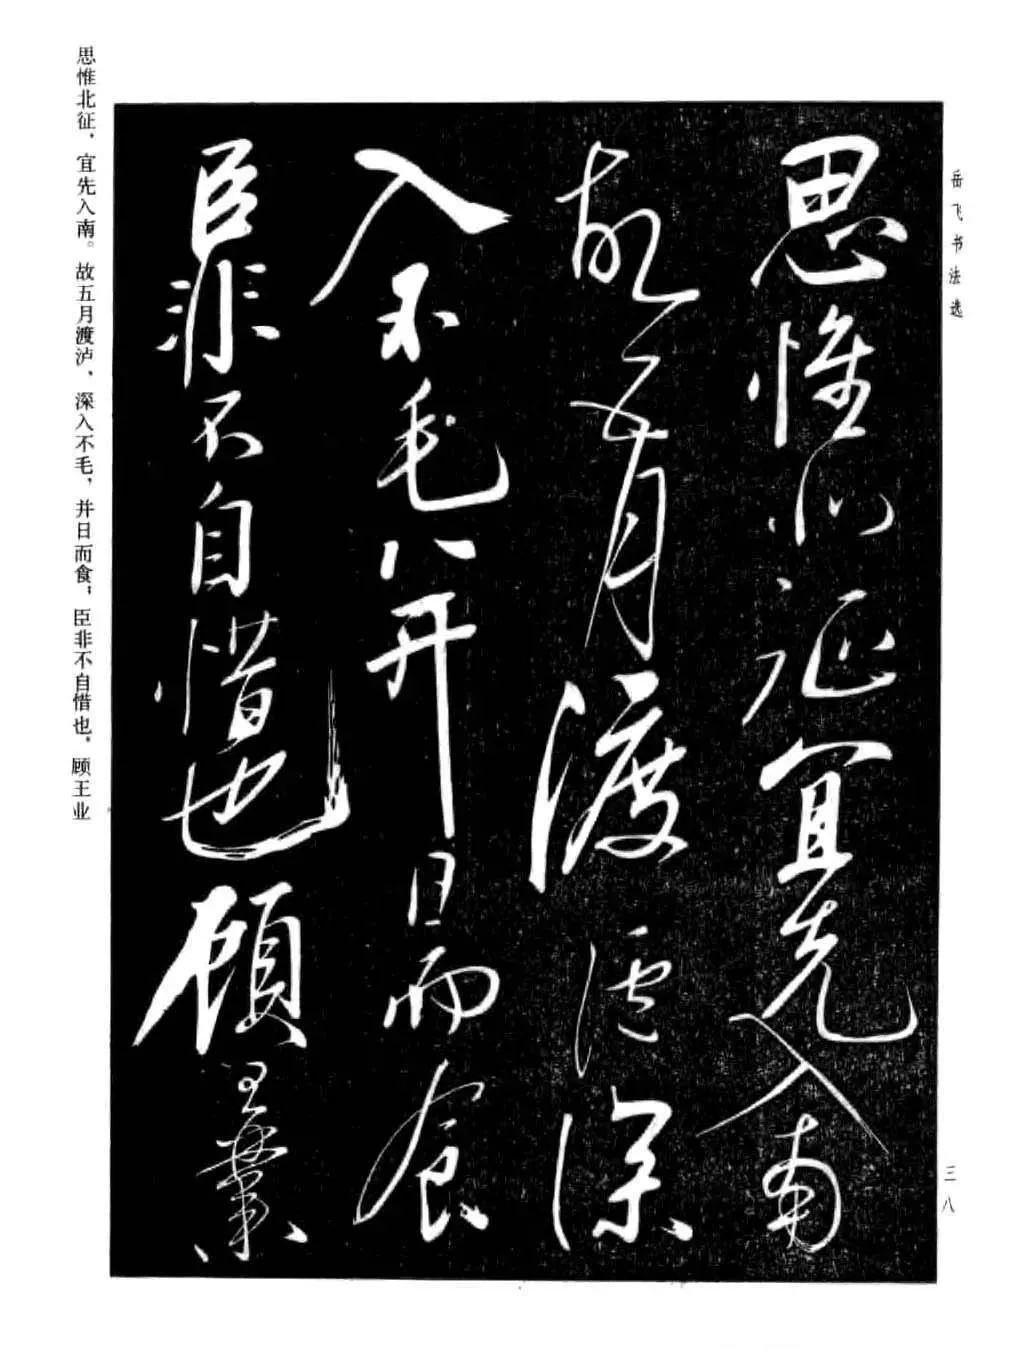 岳飞书法选
思惟北征宜先入南
故五月渡泸深
入不毛并日而食
臣非不自惜也顾王業
思惟北征，宜先入南。故五月渡泸，深入不毛，并日而食；臣非不自惜也。顾王业
三八